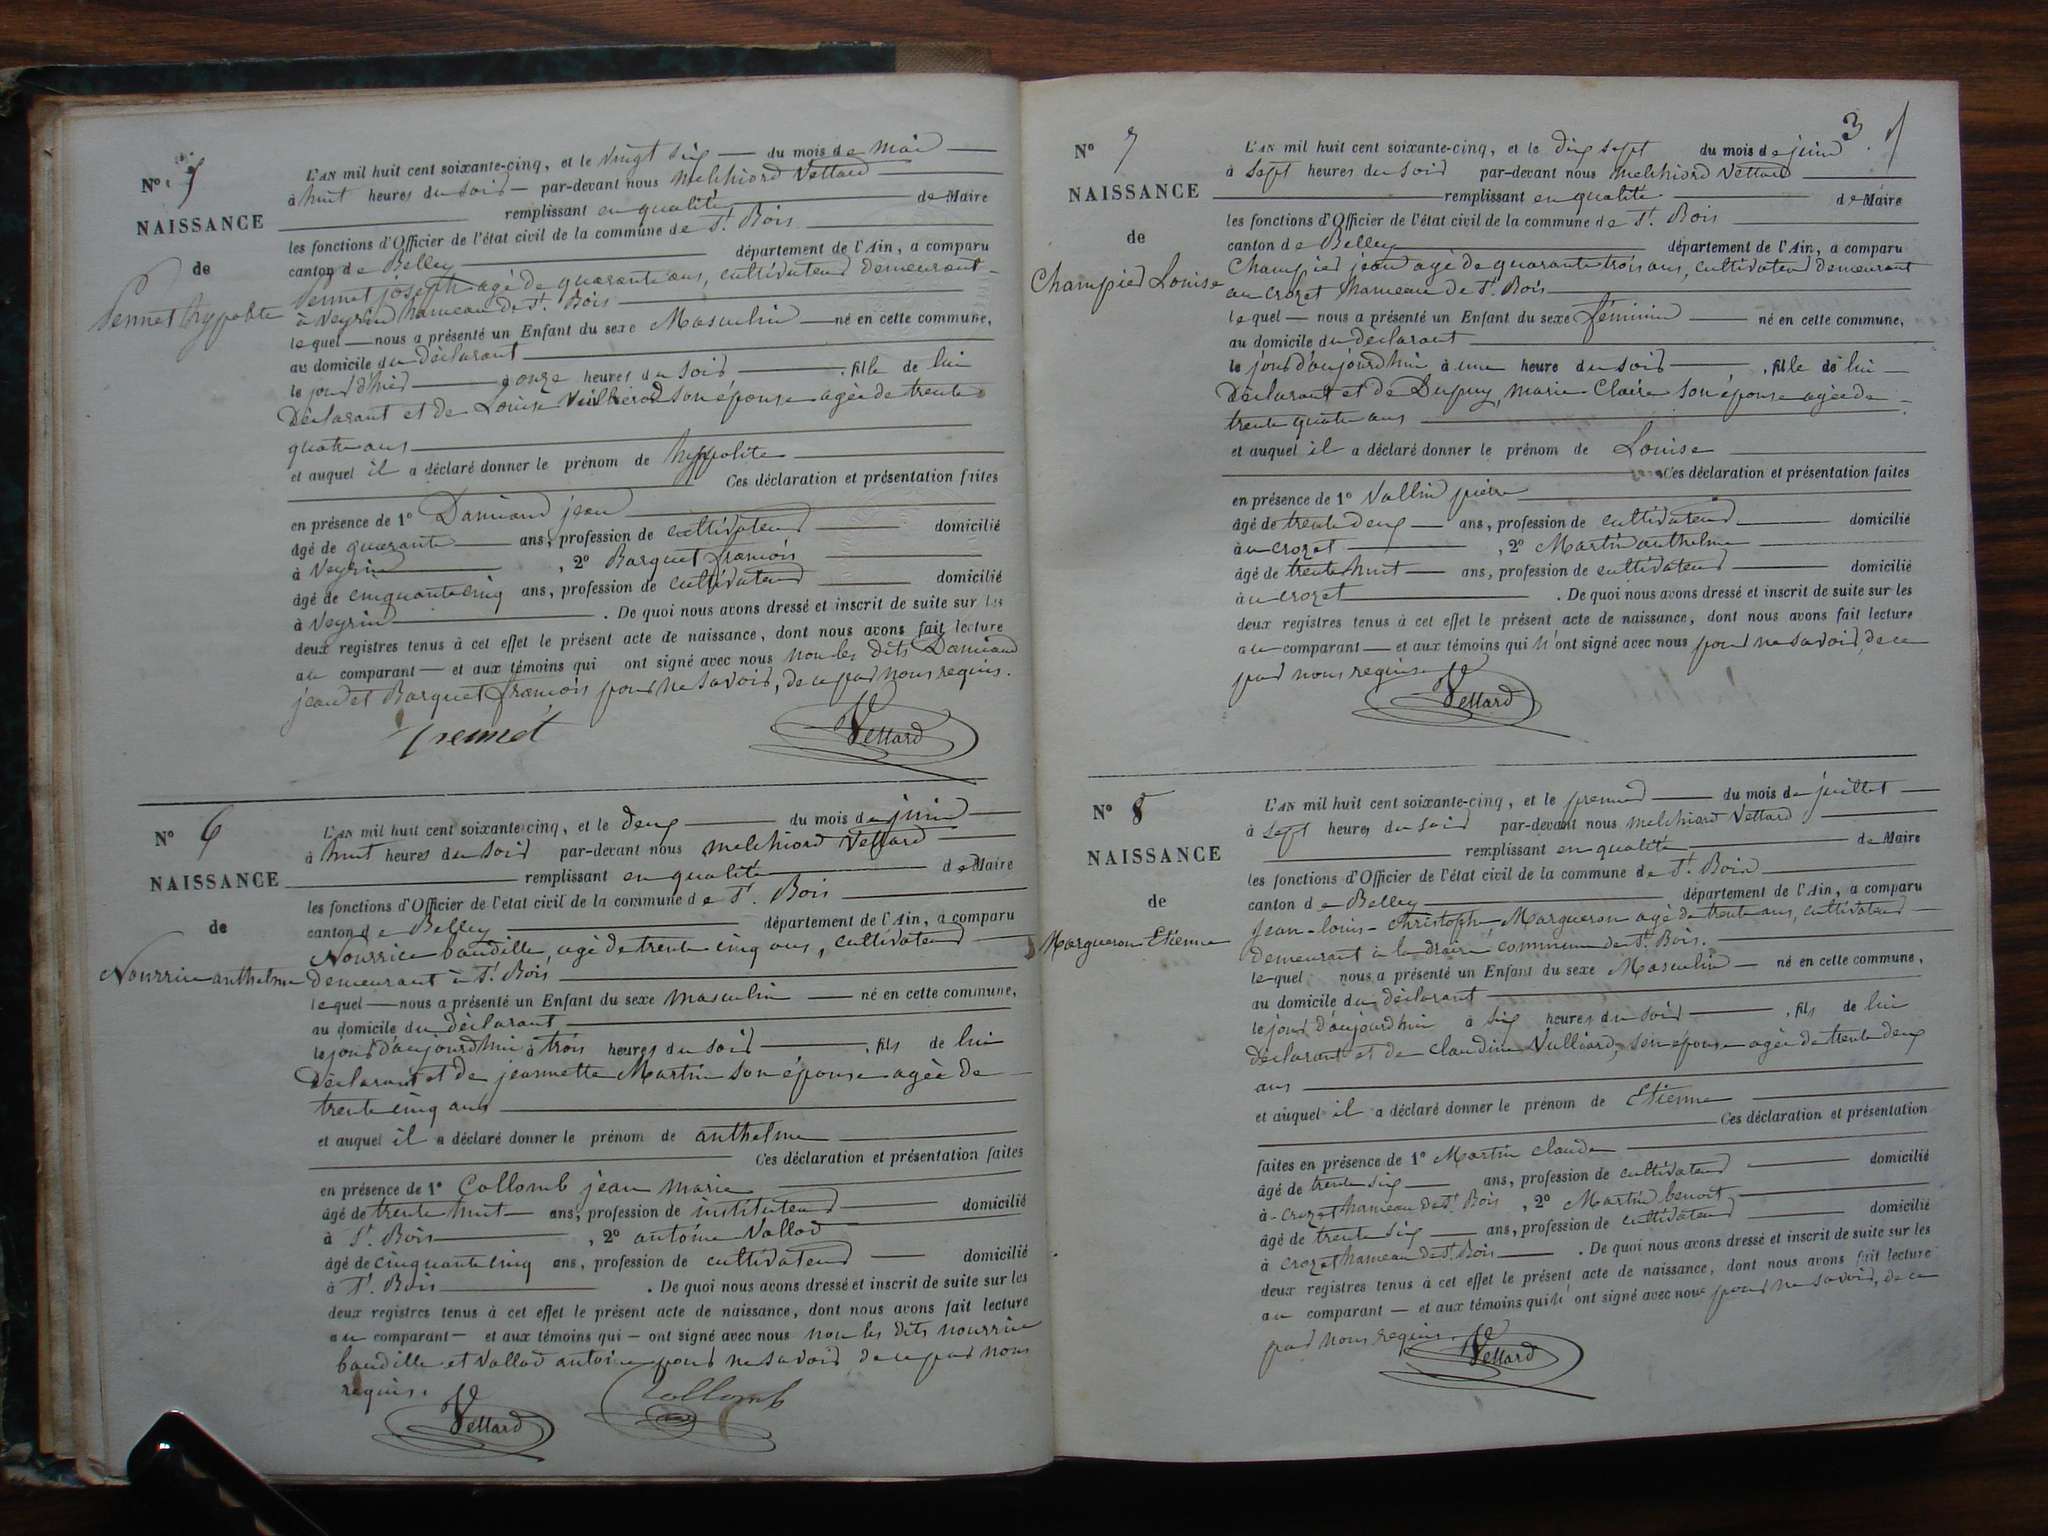 N° 5
NAISSANCE
de
Pennet hypolite
L'AN mil huit cent soixante-cinq, et le vingt six du mois de mai
à huit heures du soir par-devant nous melchiord Vettard
remplissant en qualité de Maire
les fonctions d'Officier de l'état civil de la commune de St. Bois
canton de Belley département de l'Ain, a comparu
Pennet joseph agé de quarante ans, cultivateur demeurant
à Veyrin hameau de St. Bois
lequel nous a présenté un Enfant du sexe Masculin né en cette commune,
au domicile du déclarant
le jour d'hier à onze heures du soir, fils de lui
Déclarant et de Louise son épouse agée de trente
quatre ans
et auquel il a déclaré donner le prénom de hyppolite
Ces déclaration et présentation faites
en présence de 1° Damiand jean
âgé de quarante ans, profession de cultivateur domicilié
à Veyrin, 2° Barquet francois
âgé de cinquante cinq ans, profession de cultivateur domicilié
à Veyrin. De quoi nous avons dressé et inscrit de suite sur les
deux registres tenus à cet effet le présent acte de naissance, dont nous avons fait lecture
au comparant et aux témoins qui ont signé avec nous non les dits Damiand
jean et Barquet francois pour ne savoir, de ce par nous requis.
Pennet Vettard
N° 6
NAISSANCE
de
Nourrice anthelme
L'AN mil huit cent soixante-cinq, et le deux du mois de juin
à huit heures du soir par-devant nous melchiord Vettard
remplissant en qualité de Maire
les fonctions d'Officier de l'état civil de la commune de St. Bois
canton de Belley département de l'Ain, a comparu
Nourrice baudille, agé de trente cinq ans, cultivateur
demeurant à St. Bois
lequel nous a présenté un Enfant du sexe masculin né en cette commune,
au domicile du déclarant
le jour d'aujourdhui à trois heures du soir, fils de lui
Déclarant et de jeannette Martin son épouse agée de
trente cinq ans
et auquel il a déclaré donner le prénom de anthelme
Ces déclaration et présentation faites
en présence de 1° Collomb jean marie
âgé de trente huit ans, profession de instituteur domicilié
à St. Bois, 2° antoine Vallod
âgé de cinquante cinq ans, profession de cultivateur domicilié
à St. Bois. De quoi nous avons dressé et inscrit de suite sur les
deux registres tenus à cet effet le présent acte de naissance, dont nous avons fait lecture
au comparant et aux témoins qui ont signé avec nous non les dits nourrice
baudille et Vallod antoine pour ne savoir de ce par nous
requis.
Vettard Collomb
3
N° 7
NAISSANCE
de
Champied Louise
L'AN mil huit cent soixante-cinq, et le dix sept du mois de juin
à sept heures du soir par-devant nous melchiord Vettard
remplissant en qualité de Maire
les fonctions d'Officier de l'état civil de la commune de St. Bois
canton de Belley département de l'Ain, a comparu
Champied jean agé de quarante trois ans, cultivateur demeurant
au crozet hameau de St. Bois
lequel nous a présenté un Enfant du sexe féminin né en cette commune,
au domicile du déclarant
le jour d'aujourdhui à une heure du soir, fille de lui
Déclarant et de Dupuy, marie Claire son épouse agée de
trente quatre ans
et auquel il a déclaré donner le prénom de Louise
Ces déclaration et présentation faites
en présence de 1° Vallin pierre
âgé de trente deux ans, profession de cultivateur domicilié
à au crozet, 2° Martin anthelme
âgé de trente huit ans, profession de cultivateur domicilié
à au crozet. De quoi nous avons dressé et inscrit de suite sur les
deux registres tenus à cet effet le présent acte de naissance, dont nous avons fait lecture
au comparant et aux témoins qui n'ont signé avec nous pour ne savoir, de ce
par nous requis.
Vettard
N° 8
NAISSANCE
de
Margueron Etienne
L'AN mil huit cent soixante-cinq, et le premier du mois de juillet
à sept heures du soir par-devant nous melchiord Vettard
remplissant en qualité de Maire
les fonctions d'Officier de l'état civil de la commune de St. Bois
canton de Belley département de l'Ain, a comparu
Jean-louis-Christophe Margueron agé de trente ans, cultivateur
demeurant à commune de St. Bois.
lequel nous a présenté un Enfant du sexe Masculin né en cette commune,
au domicile du déclarant
le jour d'aujourdhui à six heures du soir, fils de lui
déclarant et de claudine Vulliard, son épouse agée de trente deux
ans
et auquel il a déclaré donner le prénom de Etienne
Ces déclaration et présentation
faites en présence de 1° Martin claude
âgé de trente six ans, profession de cultivateur domicilié
à crozet hameau de St. Bois, 2° Martin benoit
âgé de trente six ans, profession de cultivateur domicilié
à crozet hameau de St. Bois. De quoi nous avons dressé et inscrit de suite sur les
deux registres tenus à cet effet le présent acte de naissance, dont nous avons fait lecture
au comparant et aux témoins qui n'ont signé avec nous pour ne savoir, de ce
par nous requis.
Vettard